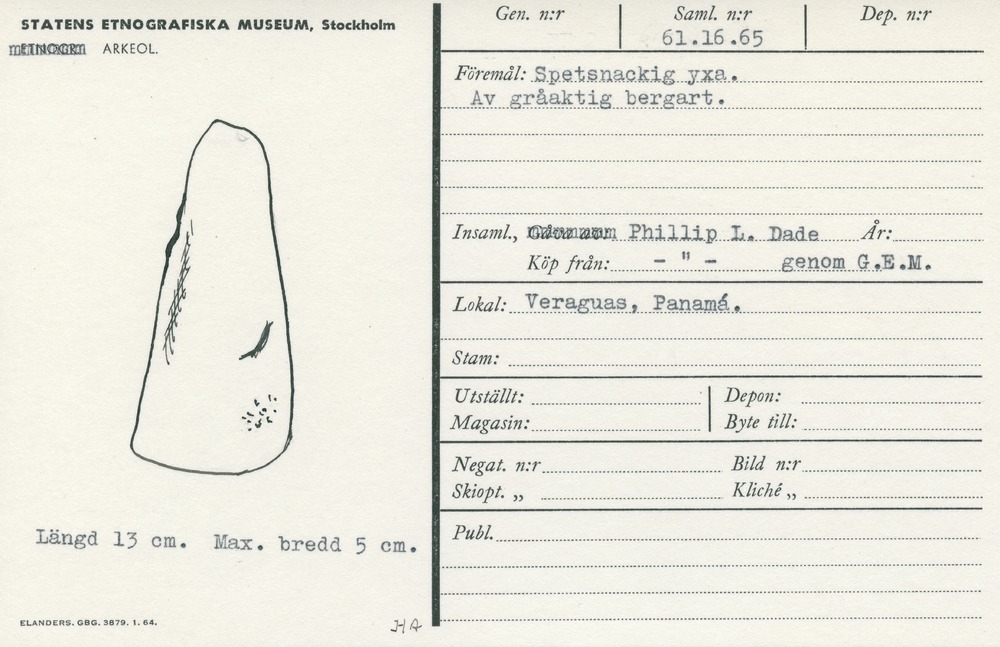 STATENS ETNOGRAFISKA MUSEUM, Stockholm
ETNOGR. ARKEOL.
Längd 13 cm. Max. bredd 5 cm.
ELANDERS. GBG. 3879. 1. 64.
HA
Gen. n:r Saml. n:r Dep. n:r
61.16.65
Föremål: Spetsnackig yxa.
Av gråaktig bergart.
Insaml., Gåva av: Phillip L. Dade År:
Köp från: - " - genom G.E.M.
Lokal: Veraguas, Panamá.
Stam:
Utställt: Depon:
Magasin: Byte till:
Negat. n:r Bild n:r
Skiopt. „ Kliché „
Publ.